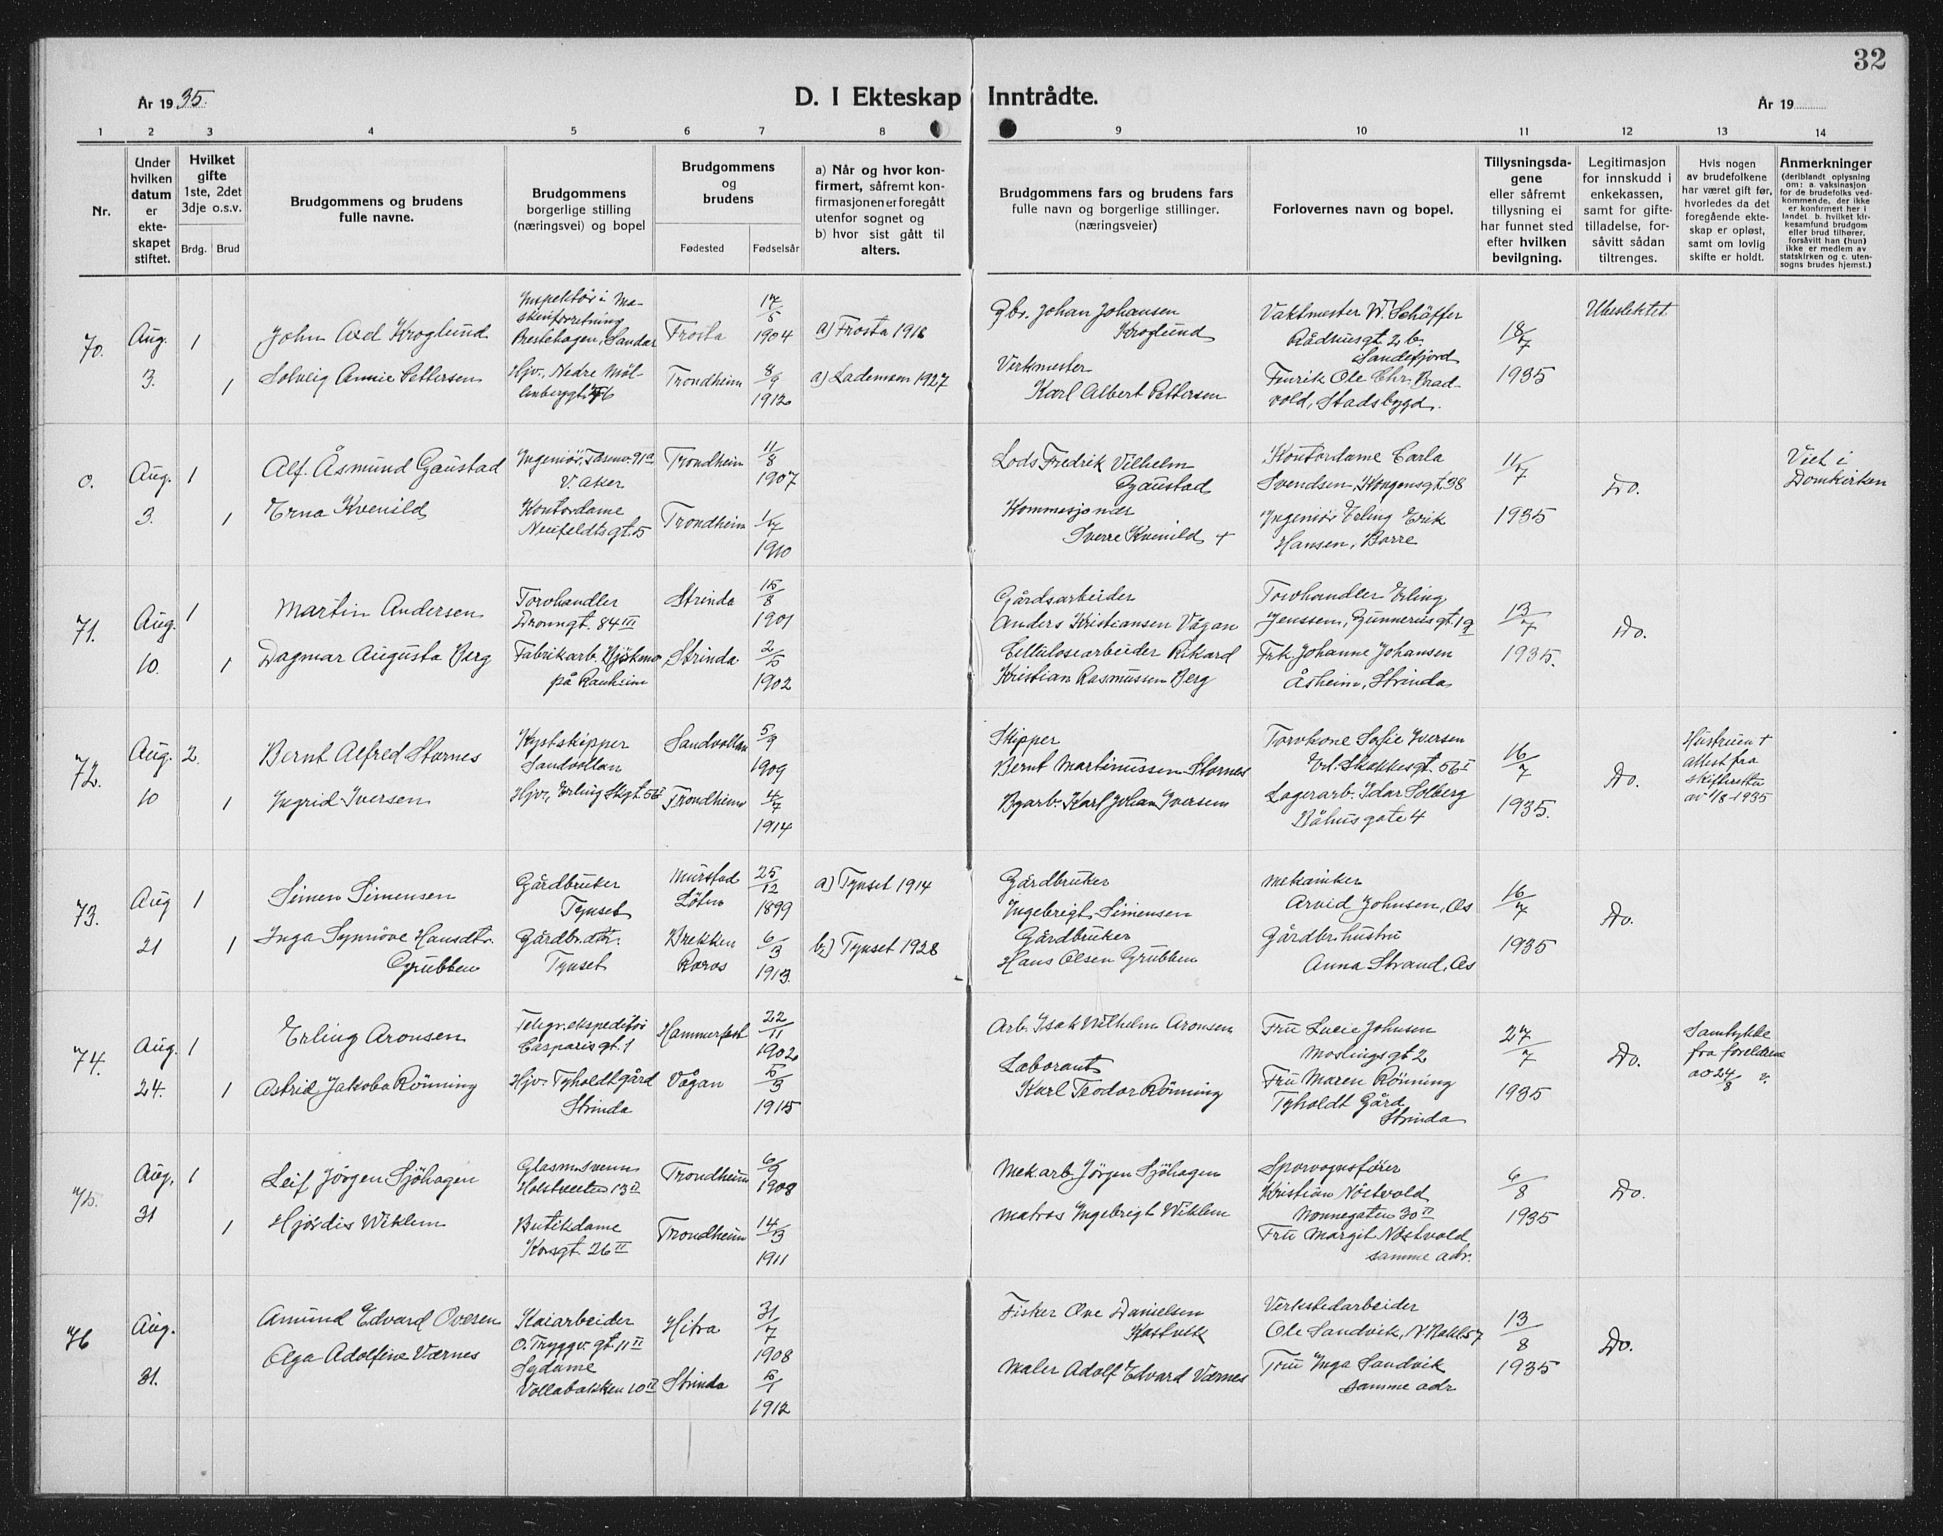 32
År 1935.
D. I Ekteskap Inntrådte.
År 19
1 2 3 4 5 6 7 8 9 10 11 12 13 14
Nr.
Under hvilken datum er ekte-skapet stiftet.
Hvilket gifte 1ste, 2det 3dje o.s.v.
Brdg. Brud
Brudgommens og brudens fulle navne.
Brudgommens borgerlige stilling (næringsvei) og bopel
Brudgommens og brudens
Fødested Fødselsår
a) Når og hvor kon-firmert, såfremt kon-firmasjonen er foregått utenfor sognet og b) hvor sist gått til alters.
Brudgommens fars og brudens fars fulle navn og borgerlige stillinger. (næringsveier)
Forlovernes navn og bopel.
Tillysningsda-gene eller såfremt tillysning ei har funnet sted efter hvilken bevilgning.
Legitimasjon for innskudd i enkekassen, samt for gifte-tilladelse, for-såvitt sådan tiltrenges.
Hvis nogen av brudefolkene har været gift før, hvorledes da det foregående ekte-skap er opløst, samt om lovlig skifte er holdt.
Anmerkninger (deriblandt oplysning om: a. vaksinasjon for de brudefolks ved-kommende, der ikke er konfirmert her i landet. b. hvilket kir-kesamfund brudgom eller brud tilhører, forsåvitt han (hun) ikke er medlem av statskirken og c. uten-sogns brudes hjemst.)
70. Aug. 3. 1 1
John Axel Kroglund
Solveig Annie Pettersen
Inspektør i Ma-
skinforretning
Prestehagen, Sandar
Hjv. Nedre Møl-
lenberggt. 76
Frosta 17/5 1904
Trondheim 8/9 1912
a) Frosta 1918
a) Lademoen 1927
Gbr. Johan Johansen
Kroglund
Verkmester
Karl Albert Pettersen
Vaktmester W. Schäffer
Rådhusgt. 2 b.
Sandefjord
Fenrik Ole Chr. Brad-
vold, Stadsbygd.
18/7 1935
Ubeslektet
0. Aug. 3. 1 1
Alf Åsmund Gaustad
Erna Kvenild
Ingeniør, Tåsenv. 91a
V. Aker
Kontordame
Neufeldtsgt. 5
Trondheim 11/8 1907
Trondheim 1/7 1910
Lods Fredrik Vilhelm
Gaustad
Kommesjonær
Sverre Kvenild +
Kontordame Carla
Svendsen, Kongensgt. 98
Ingeniør Erling Erik
Hansen, Borre
11/7 1935
Do.
Viet i
Domkirken
71. Aug. 10. 1 1
Martin Andersen
Dagmar Augusta Berg
Torvhandler
Dronngt. 84 III
Fabrikarb.
på Ranheim
Strinda 15/8 1901
Strinda 2/5 1902
Gårdsarbeider
Anders Kristiansen Vågan
Cellulosearbeider Rikard
Kristian Rasmusen Berg
Torvhandler Erling
Jenssen, Gunnerusgt. 19
Frk. Johanne Johansen
Åsheim, Strinda
13/7 1935.
Do.
72. Aug. 10 2. 1
Bernt Alfred Stornes
Ingrid Iversen
Kystskipper
Sandvollan
Hjv., Erling Skgt. 56 I
Sandvollan 5/9 1909
Trondheim 4/7 1914
Skipper
Bernt Martinussen Stornes
Byarb. Karl Johan Iversen
Torvkone Sofie Iversen
Erl. Skakkesgt. 56 I
Lagerarb. Idar Solberg
Båhusgate 4
16/7 1935.
Do.
Hustruen +
attest fra
skifteretten
av 1/8 1935
73. Aug 21 1 1
Simen Simensen
Inga Synnöve Hansdtr.
Grubben
Gårdbruker
Tynset
Gårdbr. dtr.
Tynset
Murstad
Löten 25/12 1899
Brekken
Røros 6/3 1913.
a) Tynset 1914
b) Tynset 1928
Gårdbruker
Ingebrigt Simensen
Gårdbruker
Hans Olsen Grubben
Mekaniker
Arvid Johnsen, Ås
Gårdbr. hustru
Anna Strand, Ås
16/7 1935
Do.
74. Aug. 24. 1 1
Erling Aronsen
Astrid Jakoba Rönning
Telegr. ekspeditör
Casparisgt. 1
Hjv. Tyholdt gård
Strinda
Hammerfest 22/11 1902
Vågan 5/3 1915
Arb. Isak Wilhelm Aronsen
Laborant
Karl Teodor Rönning
Fru Lucie Johnsen
Moslingsgt. 2
Fru Maren Rönning
Tyholdt Gård
Strinda
27/7 1935
Do.
Samtykke
fra foreldrene
av 24/8
75. Aug. 31 1 1
Leif Jörgen Sjöhagen
Hjördis Wiklem
Glasm.svenn
Holstveiten 13 II
Butikdame
Kongt. 26 II
Trondheim 6/9 1908
Trondheim 14/3 1911
Mek.arb. Jörgen Sjöhagen
Matros Ingebrigt Wiklem
Sporvognsförer
Kristian Nöstvold
Nonnegaten 30 II
Fru Margit Nöstvold
samme adr.
6/8 1935
Do.
76 Aug. 31.
Amund Edvard Ovesen
Olga Adolfine Værnes
Kaiarbeider
O. Tryggv. gt. 11 II
Sydame
Vollabakken 10 II
Hitra 31/7 1908
Strinda 5/1 1912
Fisker Ove Danielsen
Kastvik
Maler Adolf Edvard Værnes
Verkstedarbeider
Ole Sandvik, N. Bakl. 57
Fru Inga Sandvik
samme adr
13/8 1935
Do.